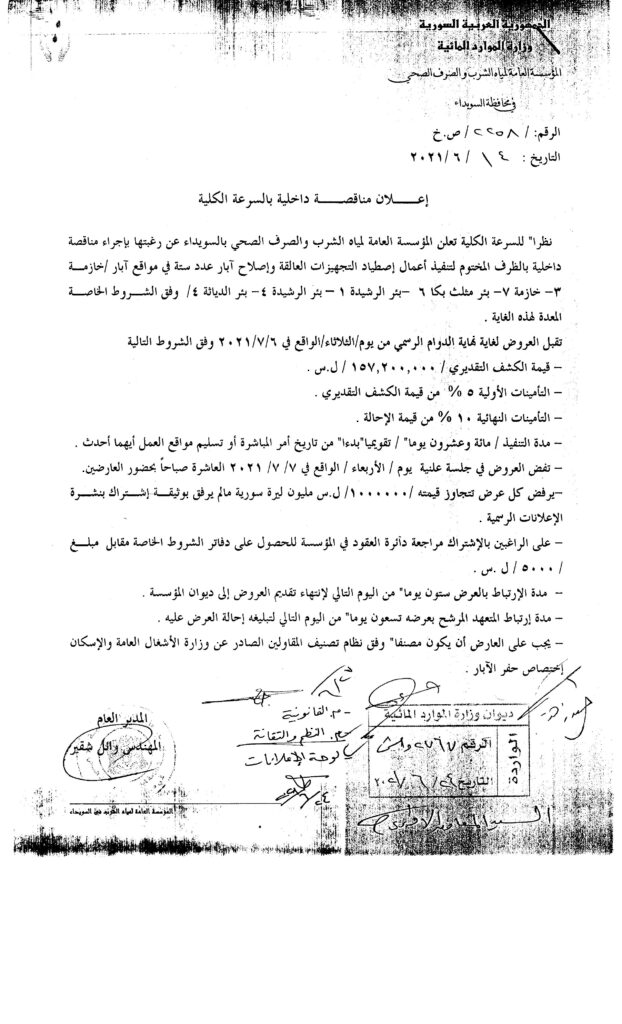 الجمهورية العربية السورية
وزارة الموارد المائية
المؤسسة العامة لمياه الشرب والصرف الصحي
في محافظة السويداء
الرقم: / ٢٢٥٨ / ص.خ
التاريخ : ١٤ / ٦ / ٢٠٢١
إعـــلان مناقصـــة داخلية بالسرعة الكلية
نظرا" للسرعة الكلية تعلن المؤسسة العامة لمياه الشرب والصرف الصحي بالسويداء عن رغبتها بإجراء مناقصة
داخلية بالظرف المختوم لتنفيذ أعمال إصطياد التجهيزات العالقة وإصلاح آبار عدد ستة في مواقع آبار /خازمة
٣- خازمة ٧- بئر مثلث بكا ٦ -بئر الرشيدة ١ - بئر الرشيدة ٤- بئر الدياثة ٤/ وفق الشروط الخاصة
المعدة لهذه الغاية .
تقبل العروض لغاية نهاية الدوام الرسمي من يوم/الثلاثاء/الواقع في ٢٠٢١/٧/٦ وفق الشروط التالية
- قيمة الكشف التقديري / ١٥٧,٢٠٠,٠٠٠ / ل.س .
- التأمينات الأولية ٥ % من قيمة الكشف التقديري .
- التأمينات النهائية ١٠ % من قيمة الإحالة .
- مدة التنفيذ / مائة وعشرون يوما" / تقويميا"بدءا" من تاريخ أمر المباشرة أو تسليم مواقع العمل أيهما أحدث .
- تفض العروض في جلسة علنية يوم / الأربعاء / الواقع في ٧ /٧ /٢٠٢١ العاشرة صباحاً بحضور العارضين.
-يرفض كل عرض تتجاوز قيمته /١٠٠٠٠٠٠/ ل.س مليون ليرة سورية مالم يرفق بوثيقة إشتراك بنشرة
الإعلانات الرسمية .
- على الراغبين بالإشتراك مراجعة دائرة العقود في المؤسسة للحصول على دفاتر الشروط الخاصة مقابل مبلغ
/ ٥٠٠٠ / ل.س .
- مدة الإرتباط بالعرض ستون يوما" من اليوم التالي لإنتهاء تقديم العروض إلى ديوان المؤسسة .
- مدة إرتباط المتعهد المرشح بعرضه تسعون يوما" من اليوم التالي لتبليغه إحالة العرض عليه .
- يجب على العارض أن يكون مصنفا" وفق نظام تصنيف المقاولين الصادر عن وزارة الأشغال العامة والإسكان
إختصاص حفر الآبار .
المدير العام
المهندس وائل شقير
- م. القانونية
- م. النظم والتقانة
لوحة الإعلانات
ديوان وزارة الموارد المائية
الواردة
الرقم ٢٧٦٧
التاريخ ٢٤ / ٦ / ٢٠٢١
المؤسسة العامة لمياه الشرب في السويداء